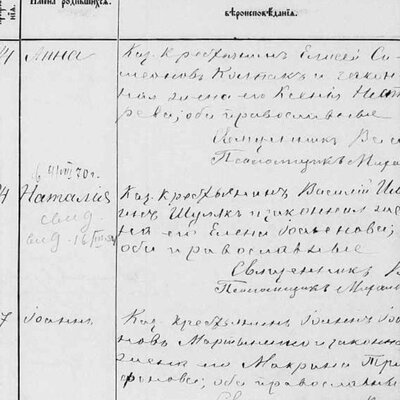 Имена родившихся.
вѣроисповѣданія.
4
Анна
Каз. Крестьянинъ Елисей Си-
меоновъ Колпакъ и закон-
ная жена его Ксенія Нест
рева; оба православные
Священникъ Ва
Псаломщикъ Миха
4
Наталія
Каз. Крестьянинъ Василій Иль
инъ Шулякъ и законная же
на его Елена
оба православные
Священникъ В
Псаломщикъ Миха
7
Іоаннъ
Каз. крестьянинъ Іоаннъ Іоа
новъ Мартыненко и законна
жена его Макрина Три
фонова; оба православны